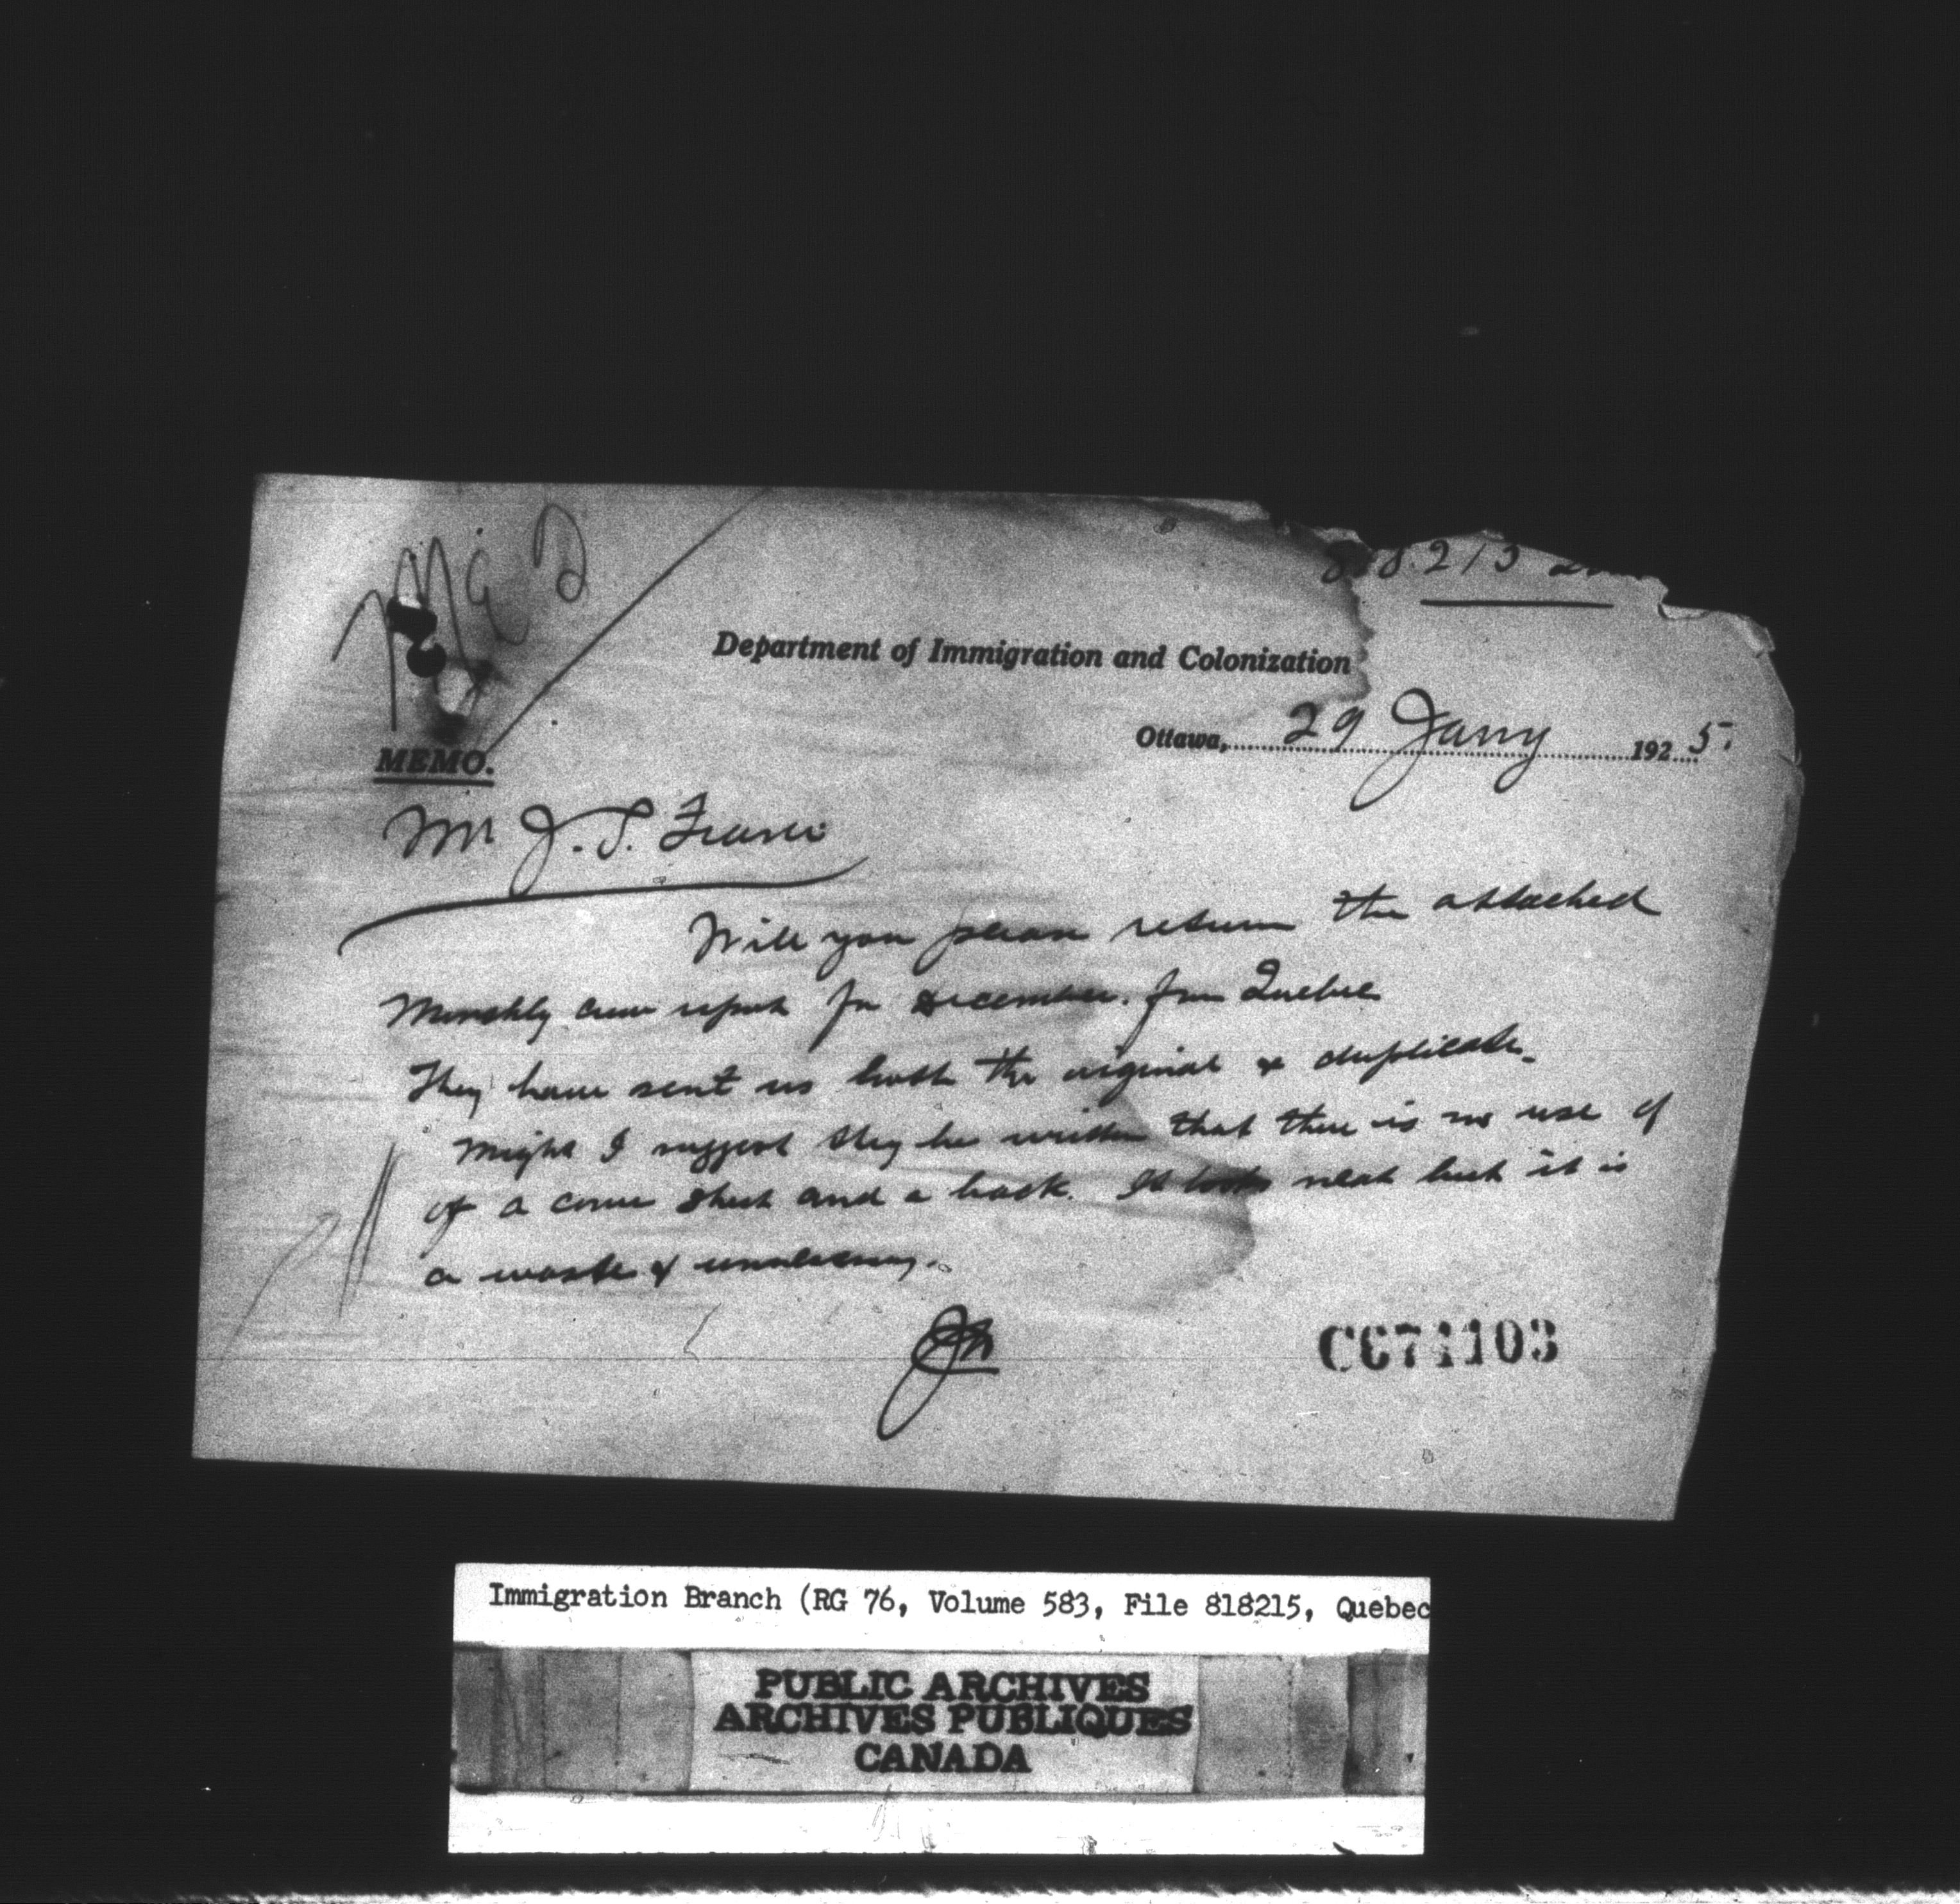 818215
Department of Immigration and Colonization
Ottawa, 29 Jany 1925.
MEMO.
Mr J. S. Fraser
Will you please return the attached
Monthly crew report for December. from Quebec
They have sent us both the original & duplicate.
Might I suggest they be written that there is no use of
of a cover sheet and a back. It looks neat but it is
a waste & unnecessary.
C674103
Immigration Branch (RG 76, Volume 583, File 818215, Quebec
PUBLIC ARCHIVES
ARCHIVES PUBLIQUES
CANADA